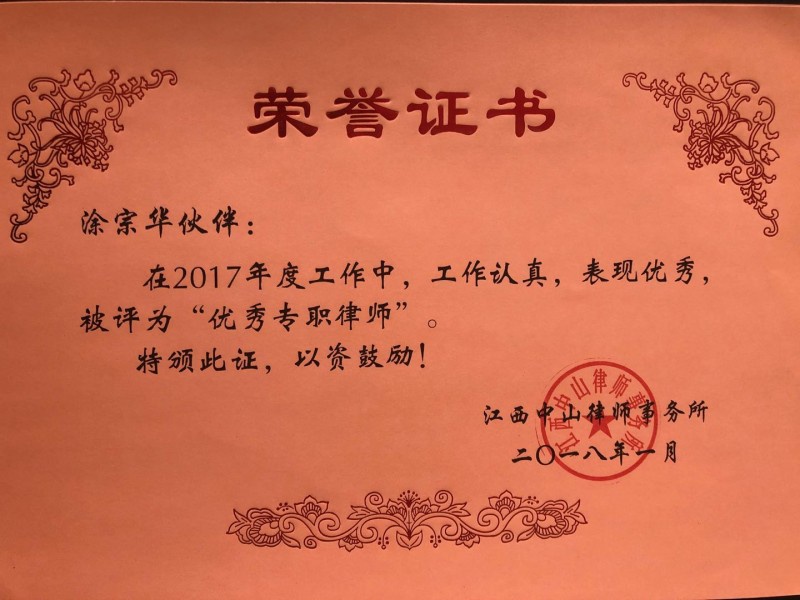 荣誉证书
涂宗华伙伴：
在2017年度工作中，工作认真，表现优秀，
被评为“优秀专职律师”。
特颁此证，以资鼓励！
江西中山律师事务所
二〇一八年一月
江西中山律师事务所